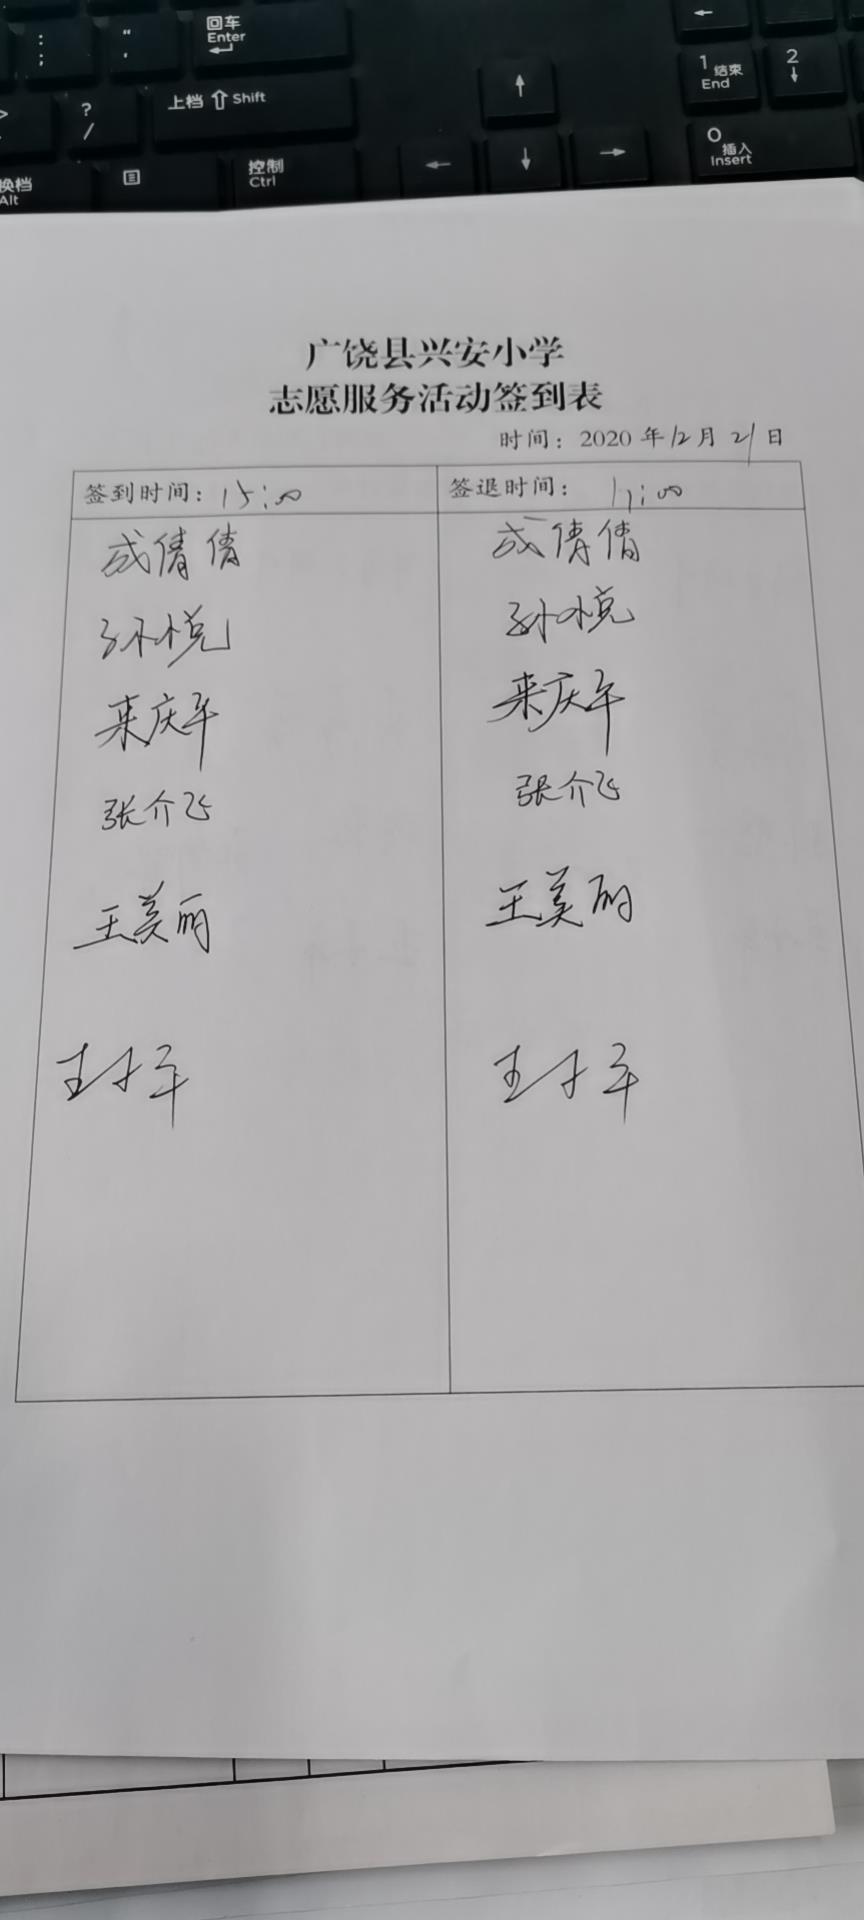 : ; " ' 回车 Enter ←
1 结束 End 2 ↓
> ? / 上档 ⇧ Shift ↑
换档 Alt 控制 Ctrl ← ↓ → 0 插入 Insert
广饶县兴安小学
志愿服务活动签到表
时间: 2020 年 12 月 21 日
签到时间: 15:00 签退时间: 17:00
成倩倩 成倩倩
孙悦 孙悦
来庆军 来庆军
张介飞 张介飞
王美丽 王美丽